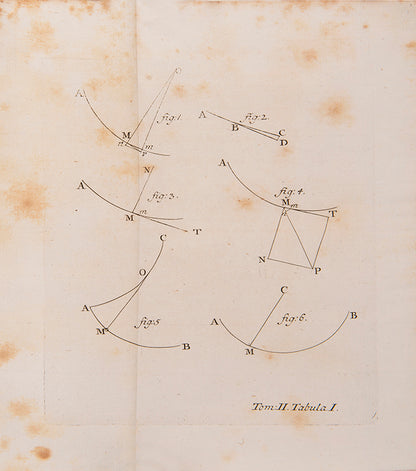 A
M
n
m
P
fig: 1.
A
B
C
D
fig: 2.
N
A
M
m
T
fig: 3.
A
M
m
T
N
P
fig: 4.
C
O
A
M
B
fig: 5
C
A
B
M
fig: 6.
Tom: II Tabula I.